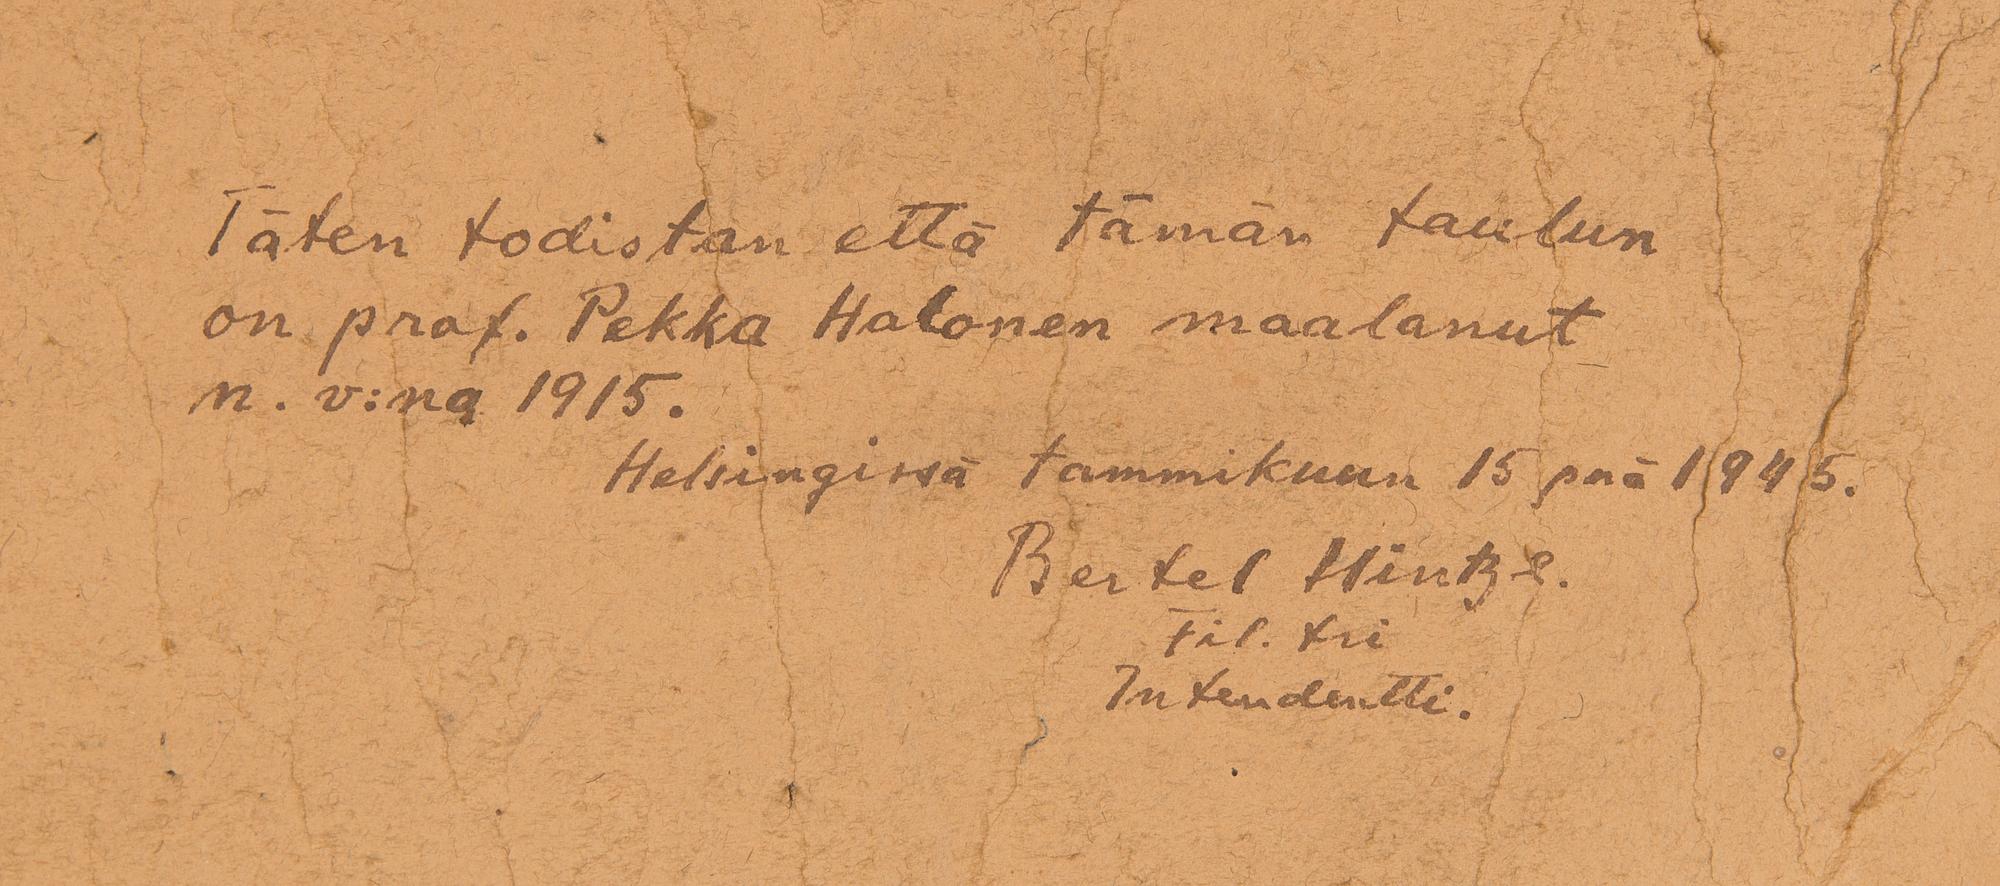 Täten todistan että tämän taulun
on prof. Pekka Halonen maalanut
n. v:na 1915.
Helsingissä tammikuun 15 pnä 1945.
Bertel Hintze.
Fil. tri
Intendentti.